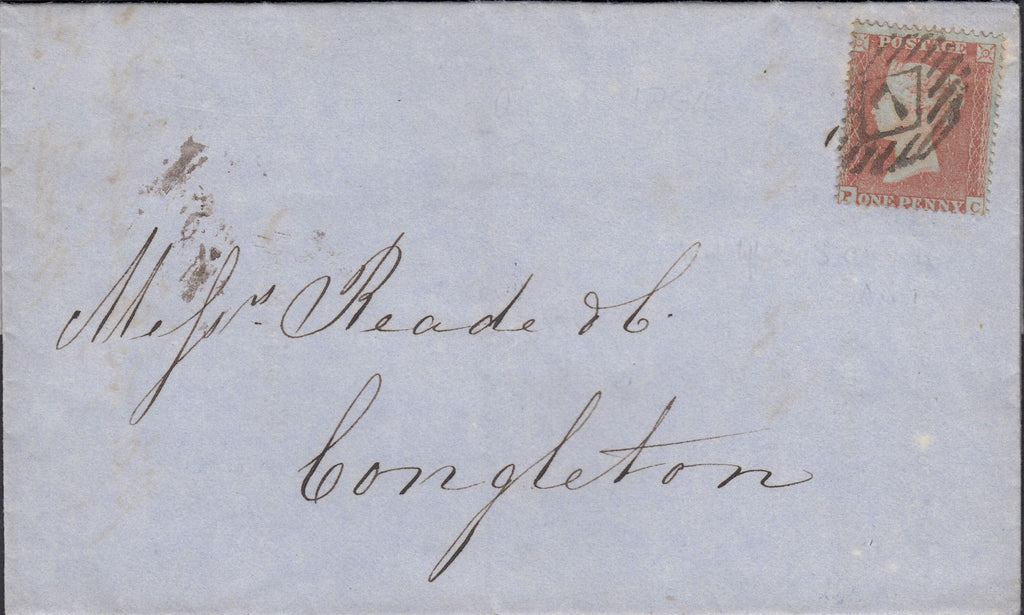 POSTAGE
ONE PENNY C
Messrs. Reade & C.
Congleton